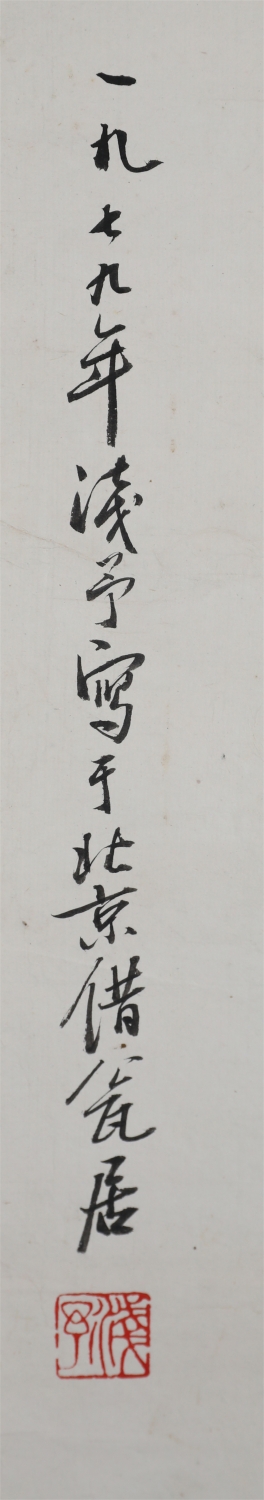 一九七九年淺予寫于北京借瓮居
淺予